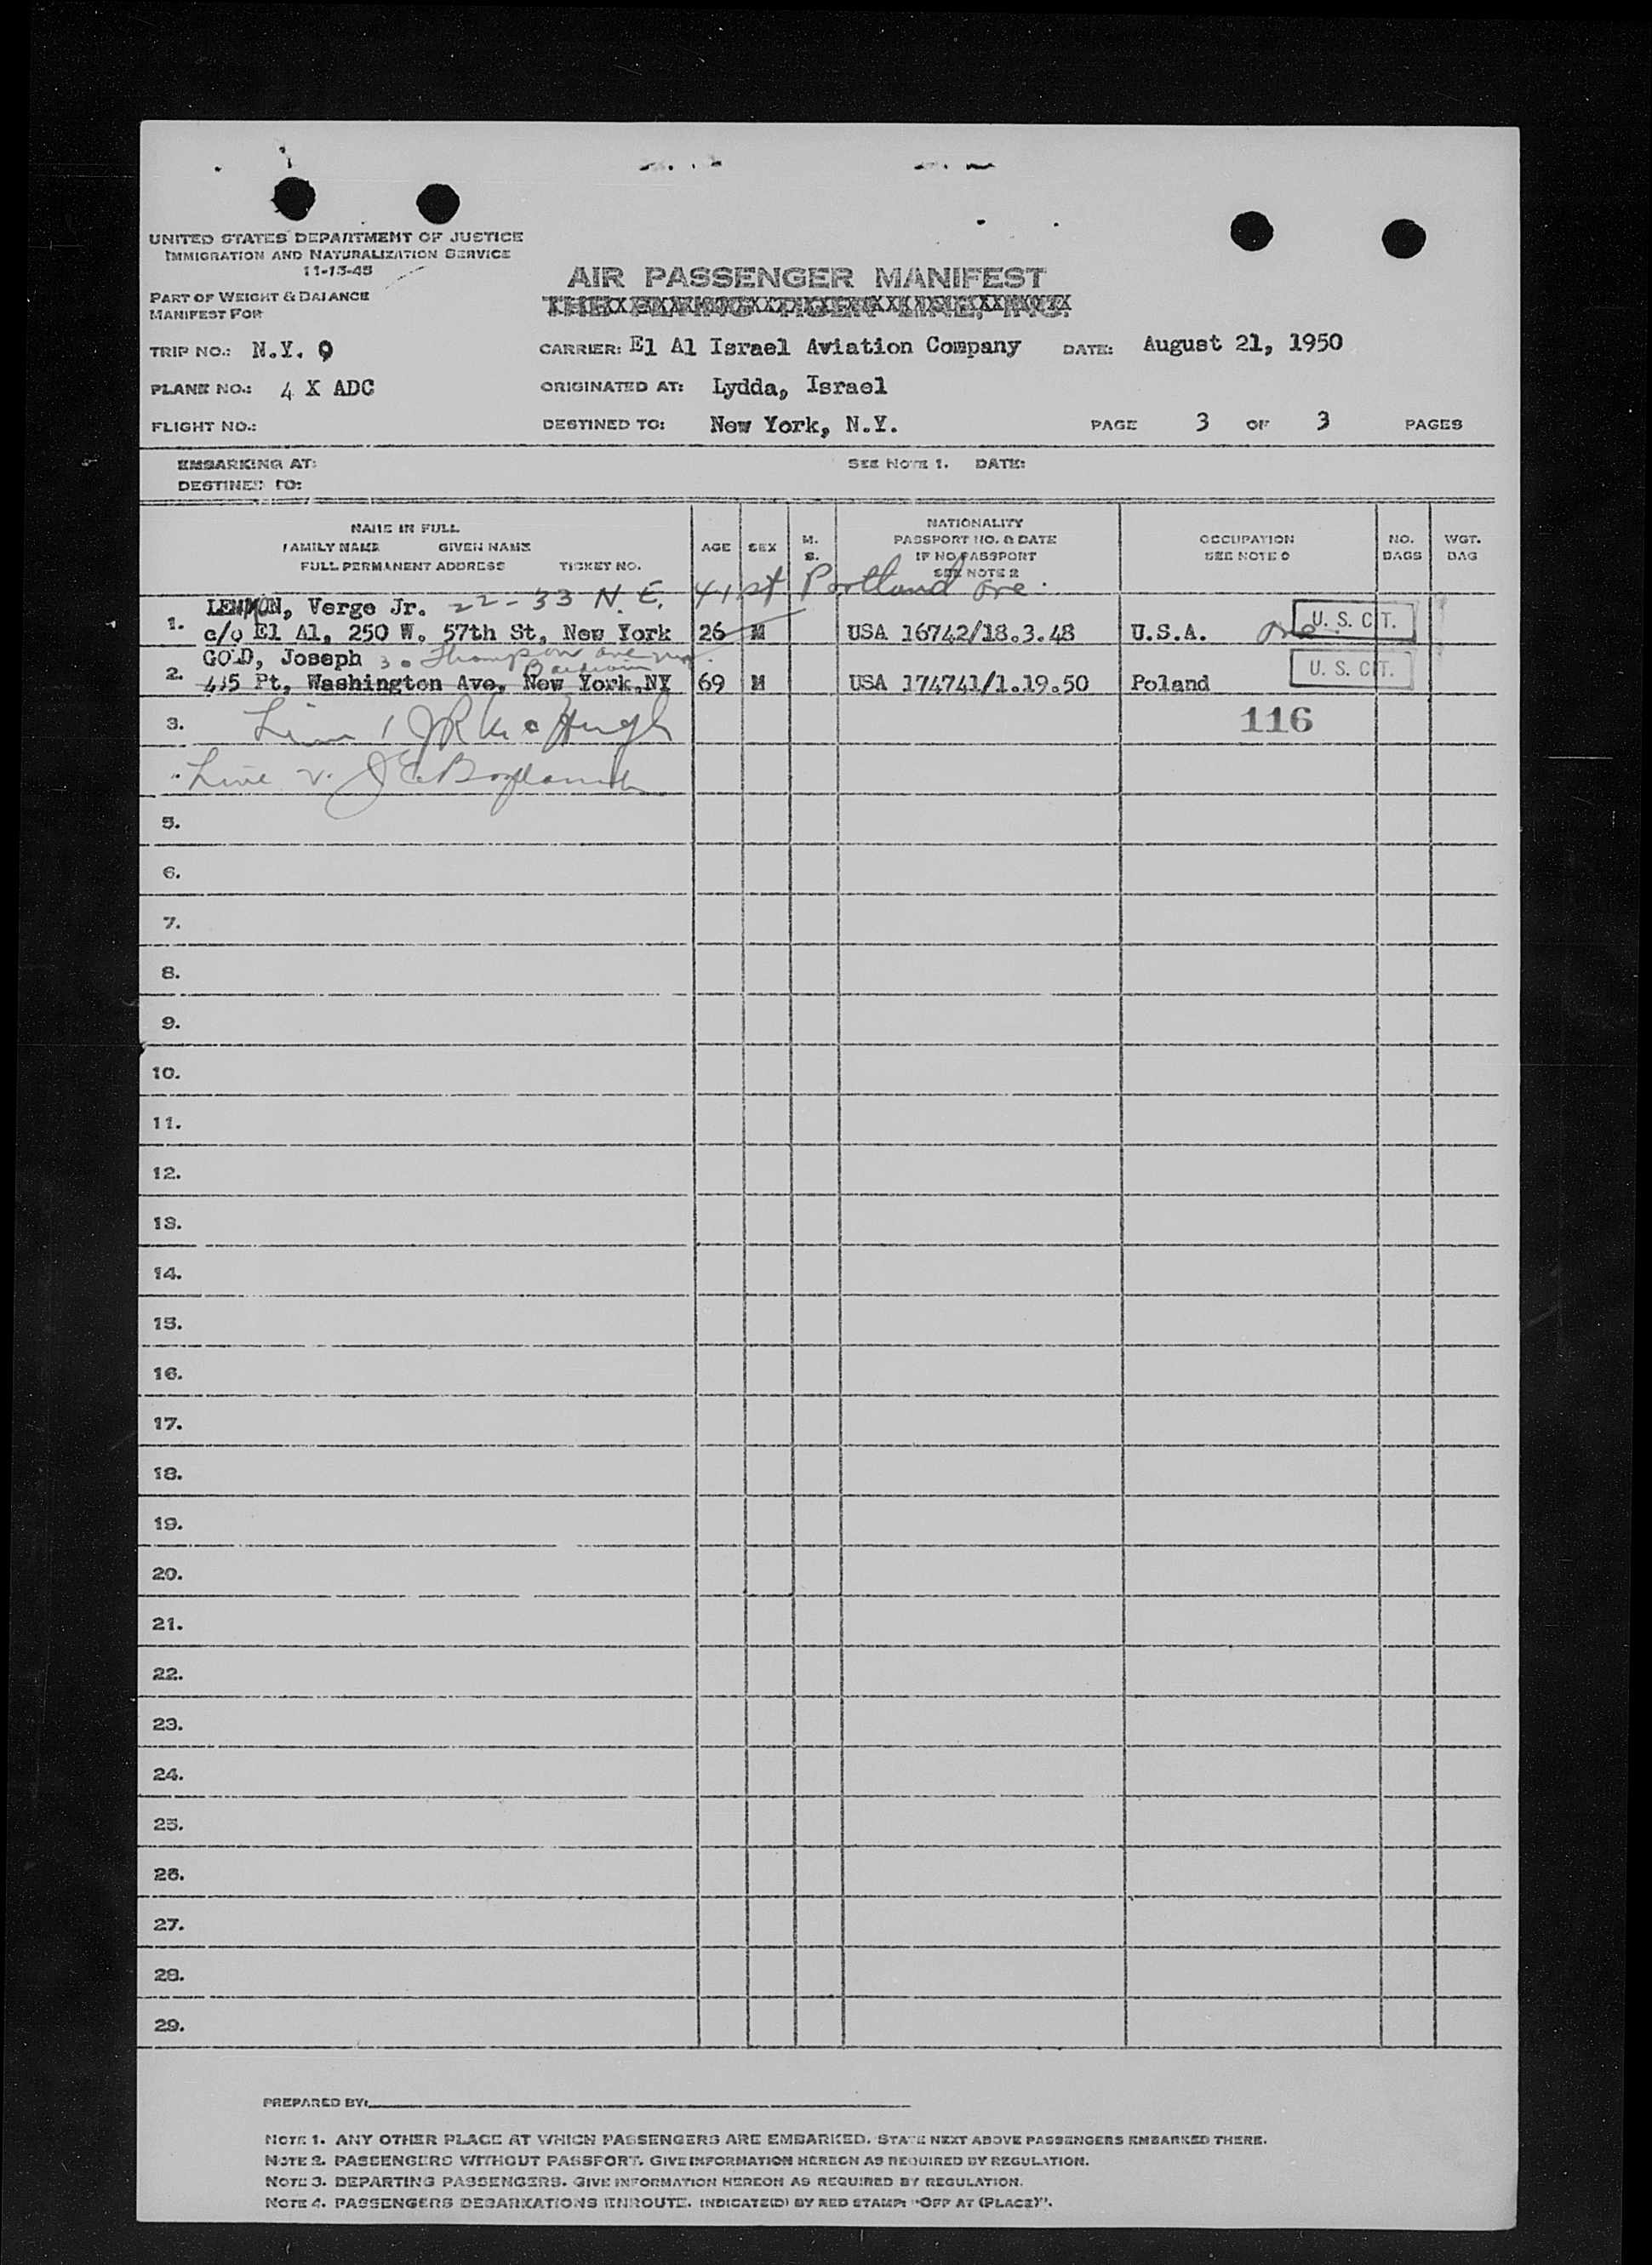 UNITED STATES DEPARTMENT OF JUSTICE
IMMIGRATION AND NATURALIZATION SERVICE
11-15-45
AIR PASSENGER MANIFEST
PART OF WEIGHT & BALANCE
MANIFEST FOR
THE FLYING TIGER LINE, INC.
TRIP NO.: N.Y. 9 CARRIER: El Al Israel Aviation Company DATE: August 21, 1950
PLANE NO.: 4 X ADC ORIGINATED AT: Lydda, Israel
FLIGHT NO.: DESTINED TO: New York, N.Y. PAGE 3 OF 3 PAGES
EMBARKING AT: SEE NOTE 1. DATE:
DESTINED TO:
NAME IN FULL
FAMILY NAME GIVEN NAME
FULL PERMANENT ADDRESS TICKET NO.
AGE
SEX
M.
S.
NATIONALITY
PASSPORT NO. & DATE
IF NO PASSPORT
SEE NOTE 2
OCCUPATION
SEE NOTE 3
NO.
BAGS
WGT.
BAG
LEMMON, Verge Jr. 22-33 N.E. 41st Portland Ore.
1. c/o El Al, 250 W. 57th St, New York 26 M USA 16742/18.3.48 U.S.A. Ore. U. S. CIT.
GOLD, Joseph 3 Thompson Ave
Baldwin
2. 435 Ft, Washington Ave, New York,NY 69 M USA 174741/1.19.50 Poland U. S. CIT.
3. Line 1 JR McHugh 116
Line 2. J E
5.
6.
7.
8.
9.
10.
11.
12.
13.
14.
15.
16.
17.
18.
19.
20.
21.
22.
23.
24.
25.
26.
27.
28.
29.
PREPARED BY:
NOTE 1. ANY OTHER PLACE AT WHICH PASSENGERS ARE EMBARKED. STATE NEXT ABOVE PASSENGERS EMBARKED THERE.
NOTE 2. PASSENGERS WITHOUT PASSPORT. GIVE INFORMATION HEREON AS REQUIRED BY REGULATION.
NOTE 3. DEPARTING PASSENGERS. GIVE INFORMATION HEREON AS REQUIRED BY REGULATION.
NOTE 4. PASSENGERS DEBARKATIONS ENROUTE. INDICATE(D) BY RED STAMP: "OFF AT (PLACE)".